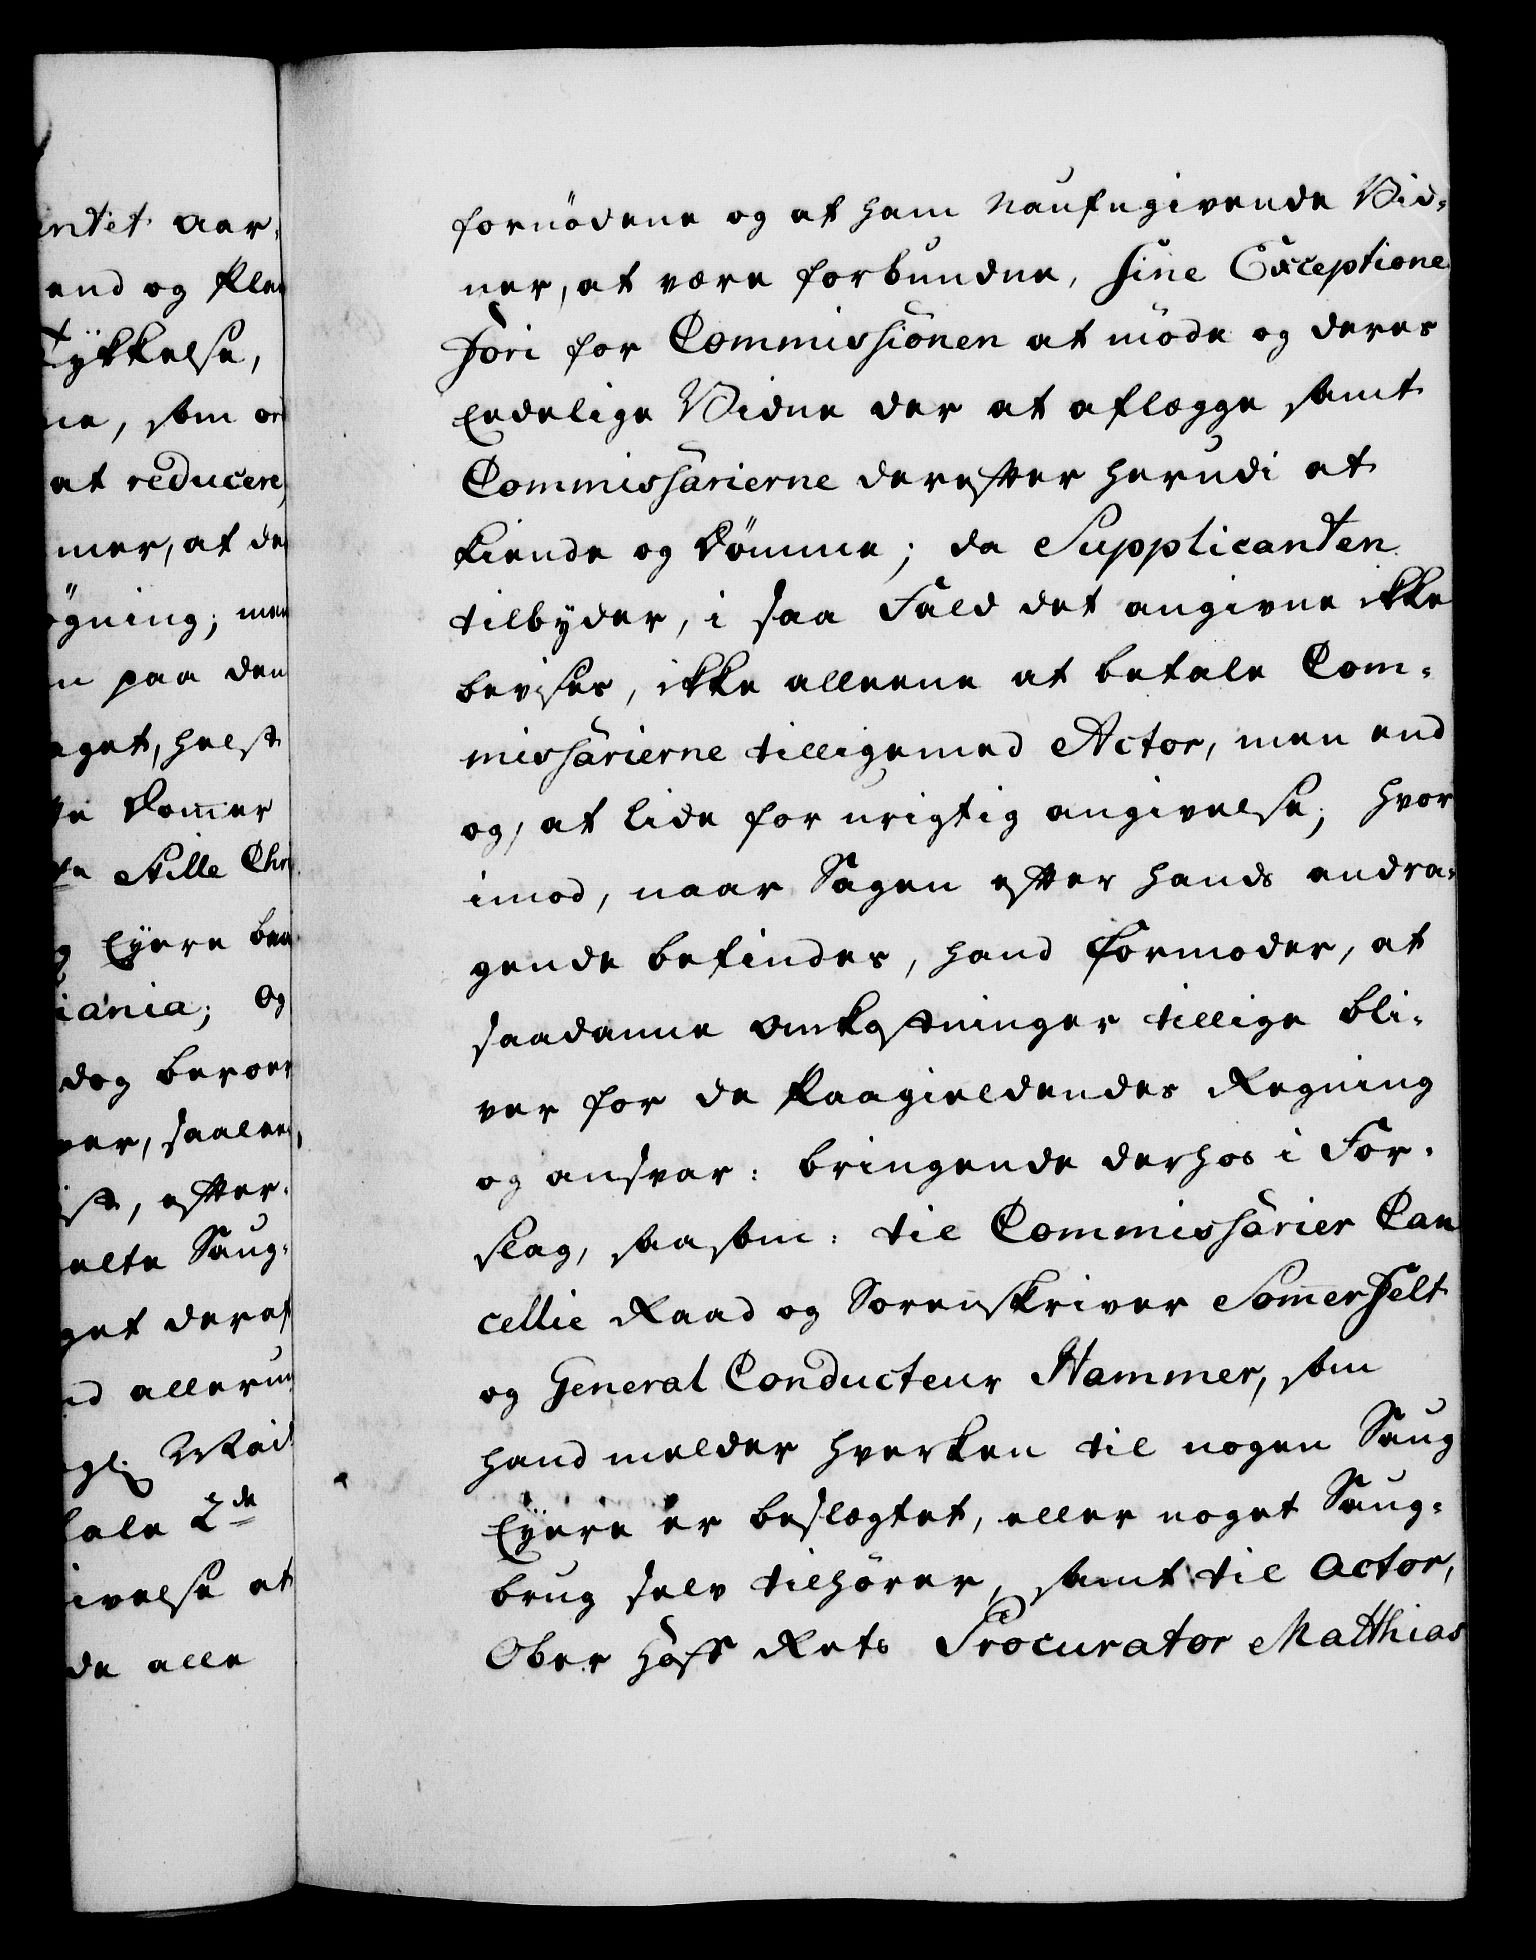 ntet aar-
end og Plan
Tÿkkelse,
ne, som or
at reducere,
mer, at de
øgning; men
n paa den
aget, helst
ge Dommer
te Stille Chri
g Eyere ben
iania; og
dog beroer
ver, saalen
ist, efter-
elte Saug-
get deraf
nd allerun
gl. Maid
tale 2de
ivelse at
de alle
fornödene og at ham Naufngivende Vid-
ner, at være forbundne, sine Exceptione
Fori for Commissionen at möde og deres
Eedelige Vidne der at aflægge samt
Commissarierne derefter herudi at
kiende og dömme; da Supplicanten
tilbÿder, i saa Fald det angivne ikke
bevises, ikke alleene at betale Com-
missarierne tilligemed Actor, men end
og, at lide for urigtig angivelse; hvor
imod, naar Sagen efter hands andra-
gende befindes, hand formoder, at
saadanne omkostninger tillige bli-
ver for de Paagieldendes Regning
og ansvar: bringende derhos i For-
slag, saasom: til Commissarier Can
cellie Raad og Sorenskriver Sommerfelt
og General Conducteur Hammer, som
hand melder hverken til nogen Saug
Eÿere er beslægtet, eller noget Saug-
brug selv tilhörer, samt til Actor,
Ober Hoff Rets Procurator Matthias